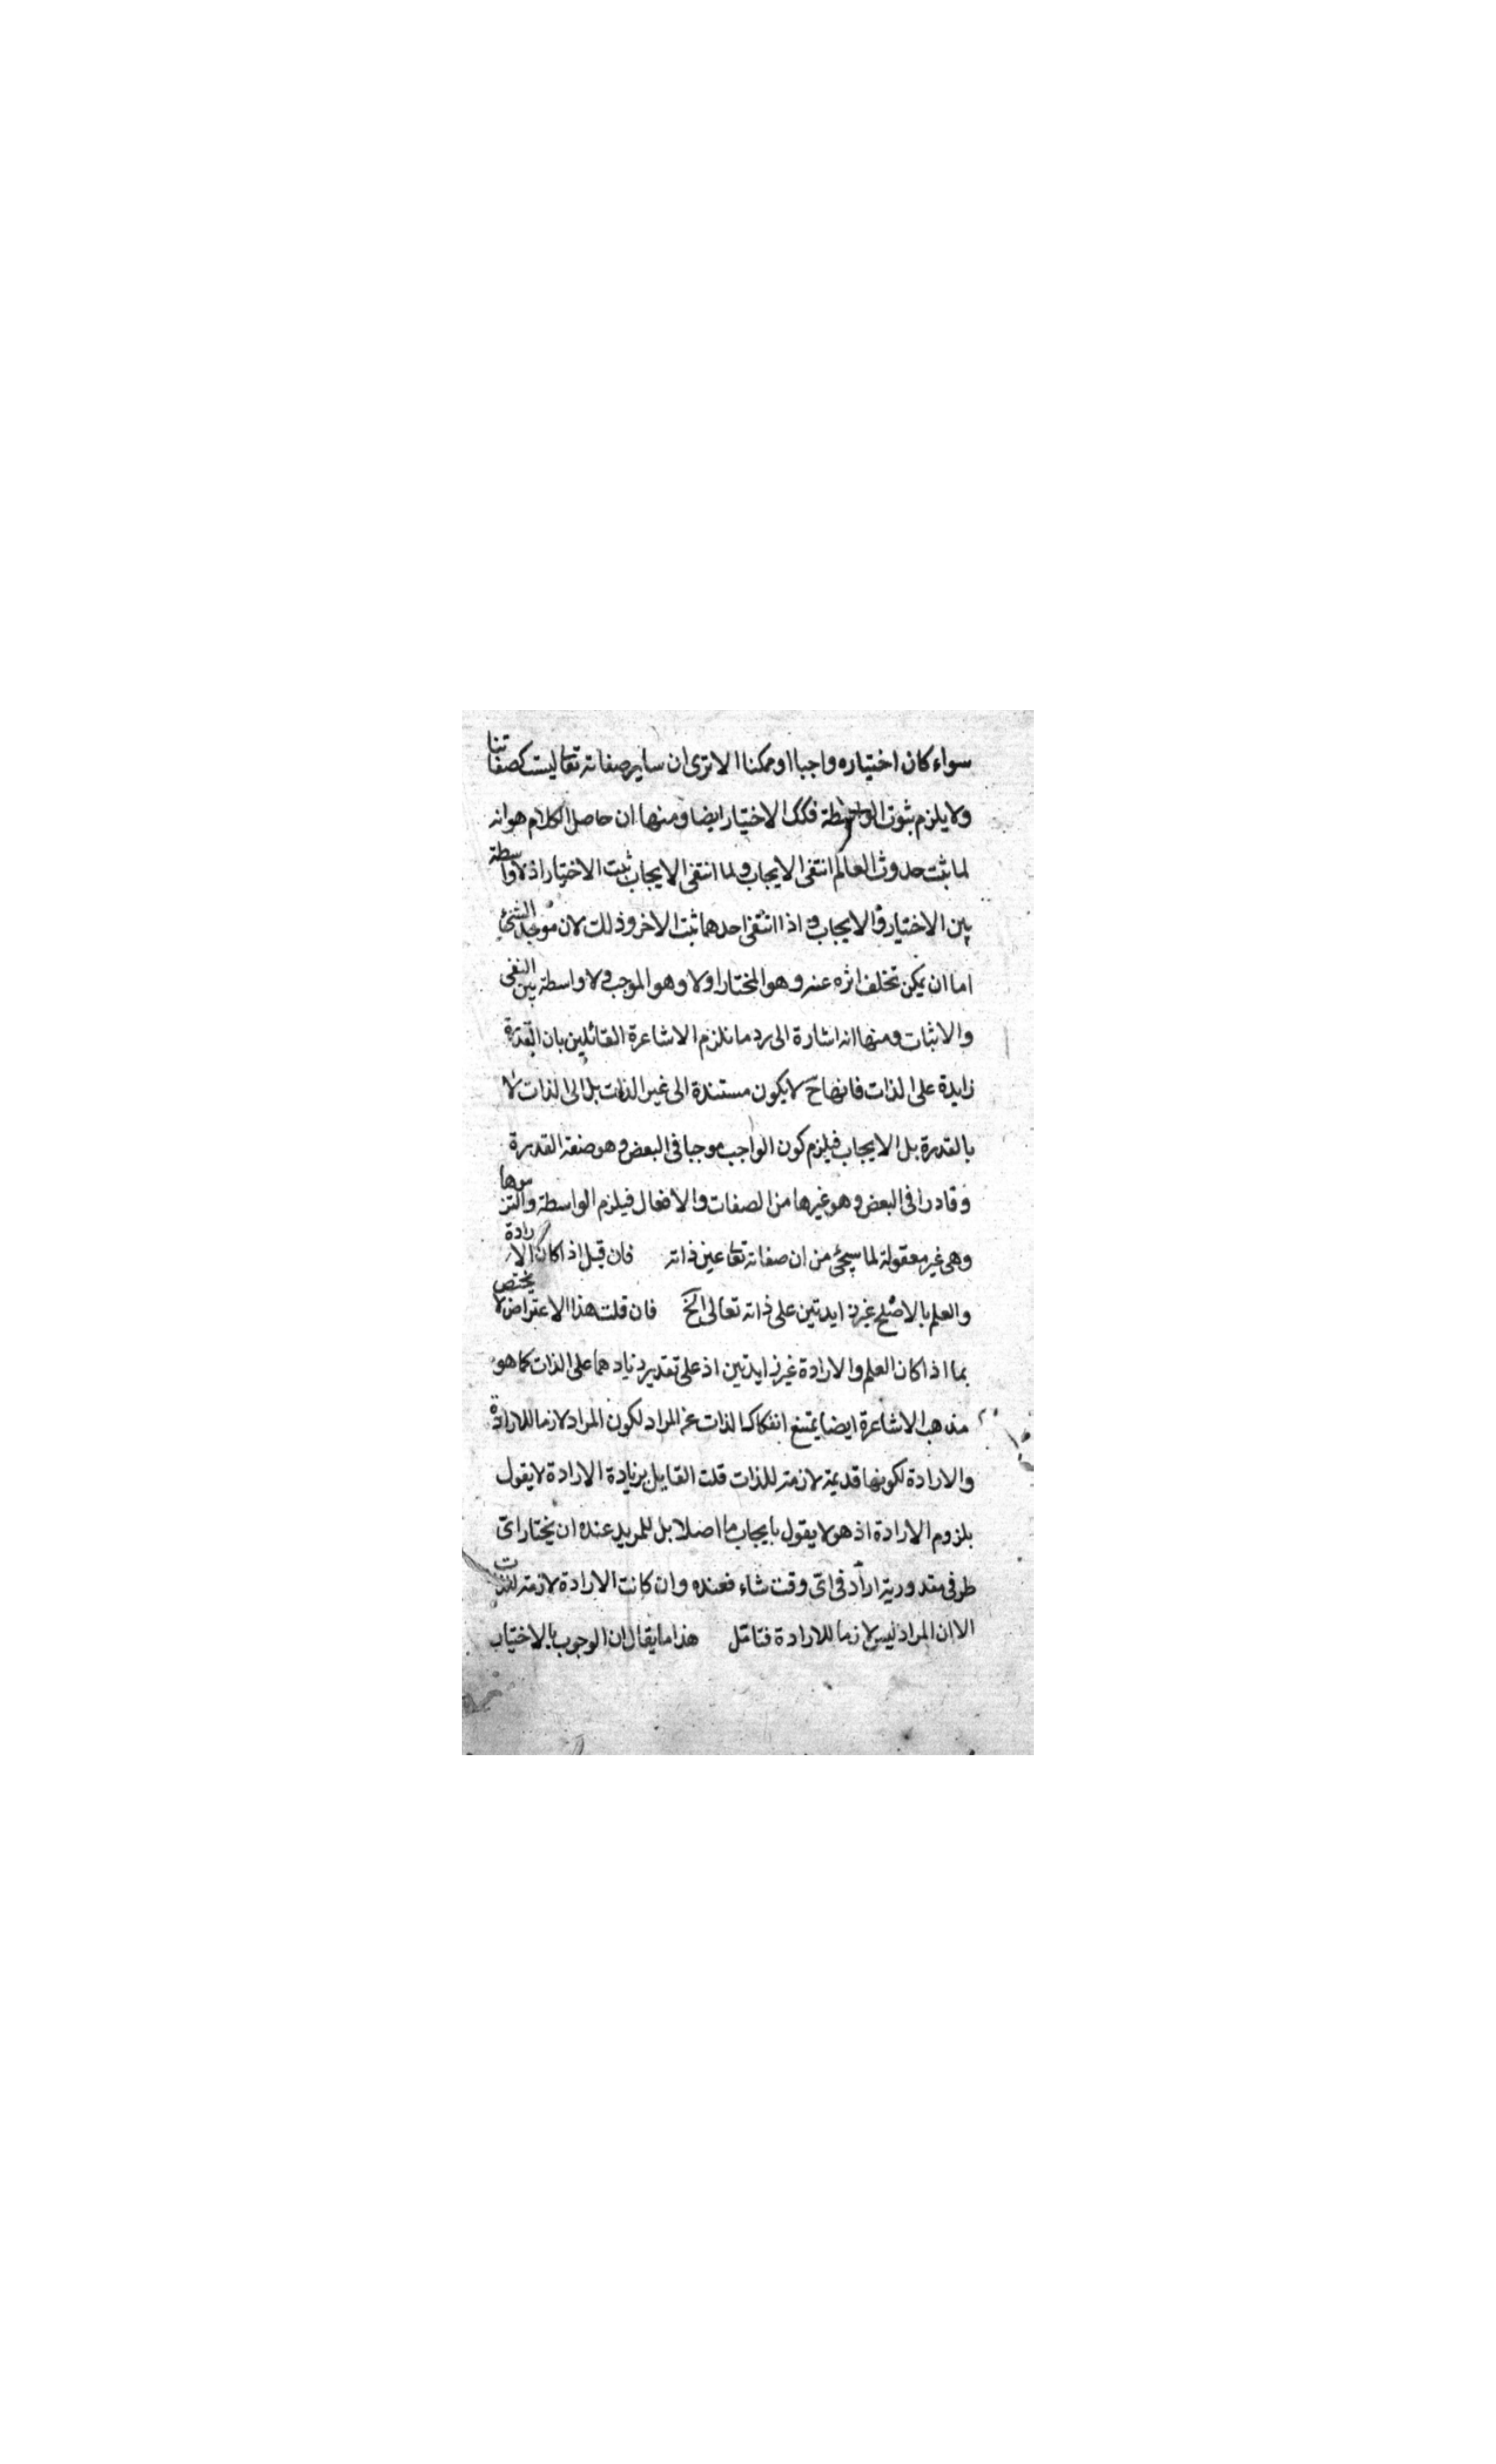 سواء كان اختياره واجبا او ممكنا الا ترى ان ساير صفاته تعالى ليست كصفاتنا
ولا يلزم بثبوت الواسطة فكك الاختيار ايضا ومنها ان حاصل الكلام هو انه
لما ثبت حدوث العالم انتفى الايجاب ولما انتفى الايجاب ثبت الاختيار اذ لا واسطة
بين الاختيار والايجاب فاذا انتفى احدهما ثبت الاخر وذلك لان موجد الشئ
اما ان يمكن تخلف اثره عنه وهو المختار اولا وهو الموجب ولا واسطة بين النفى
والاثبات ومنها انه اشارة الى رد ما نلزم الاشاعرة القائلين بان القدرة
زايدة على الذات فانهاح لا يكون مستندة الى غير الذات بل الى الذات لا
بالقدرة بل الايجاب فيلزم كون الواجب موجبا فى البعض وهو صفة القدرة
وقادرا فى البعض وهو غيرها من الصفات والافعال فيلزم الواسطة والتزموها
وهى غير معقولة لما سيجئ من ان صفاته تعالى عين ذاته فان قيل اذا كان الارادة
والعلم بالاصلح غير زايدتين على ذاته تعالى الخ فان قلت هذا الاعتراض لا يختص
بما اذا كان العلم والارادة غير زايدتين اذ على تقدير زيادهما على الذات كما هو
مذهب الاشاعرة ايضا يمتنع انفكاك الذات عن المراد لكون المراد لازما للارادة
والارادة لكونها قديمة لازمة للذات قلت القايل بزيادة الارادة لا يقول
بلزوم الارادة اذ هو لا يقول بايجاب ما اصلا بل للمريد عنده ان يختار اى
طرفى مقدوريه اراد فى اى وقت شاء فعنده وان كانت الارادة لازمة للذات
الا ان المراد ليس لازما للارادة فتامل هذا ما يقال ان الوجوب بالاختيار